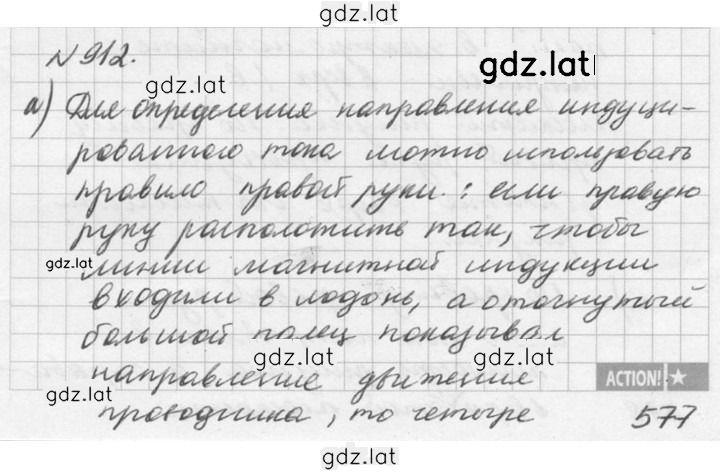 gdz.lat
N 912.
gdz.lat
gdz.lat
а) Для определения направления индуци-
рованного тока можно использовать
правило правой руки: если правую
руку расположить так, чтобы
gdz.lat
линии магнитной индукции
входили в ладонь, а отогнутый
большой палец показывал
gdz.lat
gdz.lat
направление движения
ACTION!
проводника, то четыре
577
gdz.lat